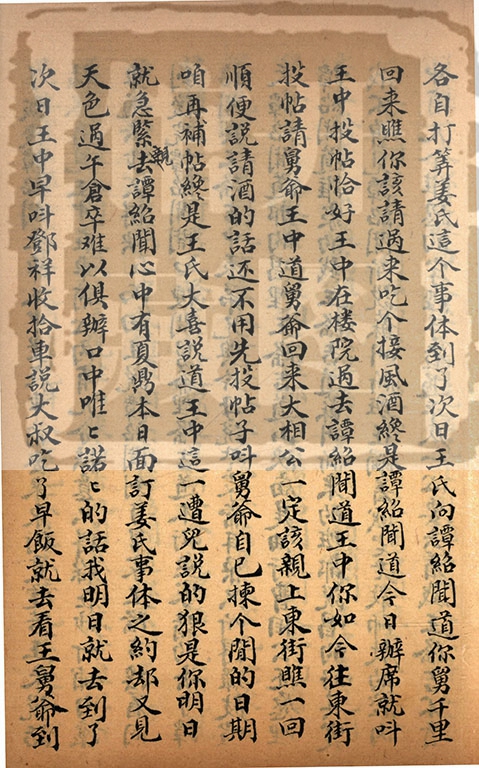 各自打筭姜氏這个事体到了次日王氏向譚紹聞道你舅千里
回来瞧你該請過来吃个接風酒終是譚紹聞道今日辦席就呌
王中投帖恰好王中在楼院過去譚紹聞道王中你如今往東街
投帖請舅爺王中道舅爺回来大相公一定該親上東街瞧一回
順便説請酒的話还不用先投帖子呌舅爺自已揀个閒的日期
咱再補帖終是王氏大喜説道王中這一遭兒説的狠是你明日
就急緊去親譚紹聞心中有夏鼎本日面訂姜氏事体之約却又見
天色過午倉卒难以俱辦口中唯〻諾〻的話我明日就去到了
次日王中早呌鄧祥收拾車説大叔吃了早飯就去看王舅爺到